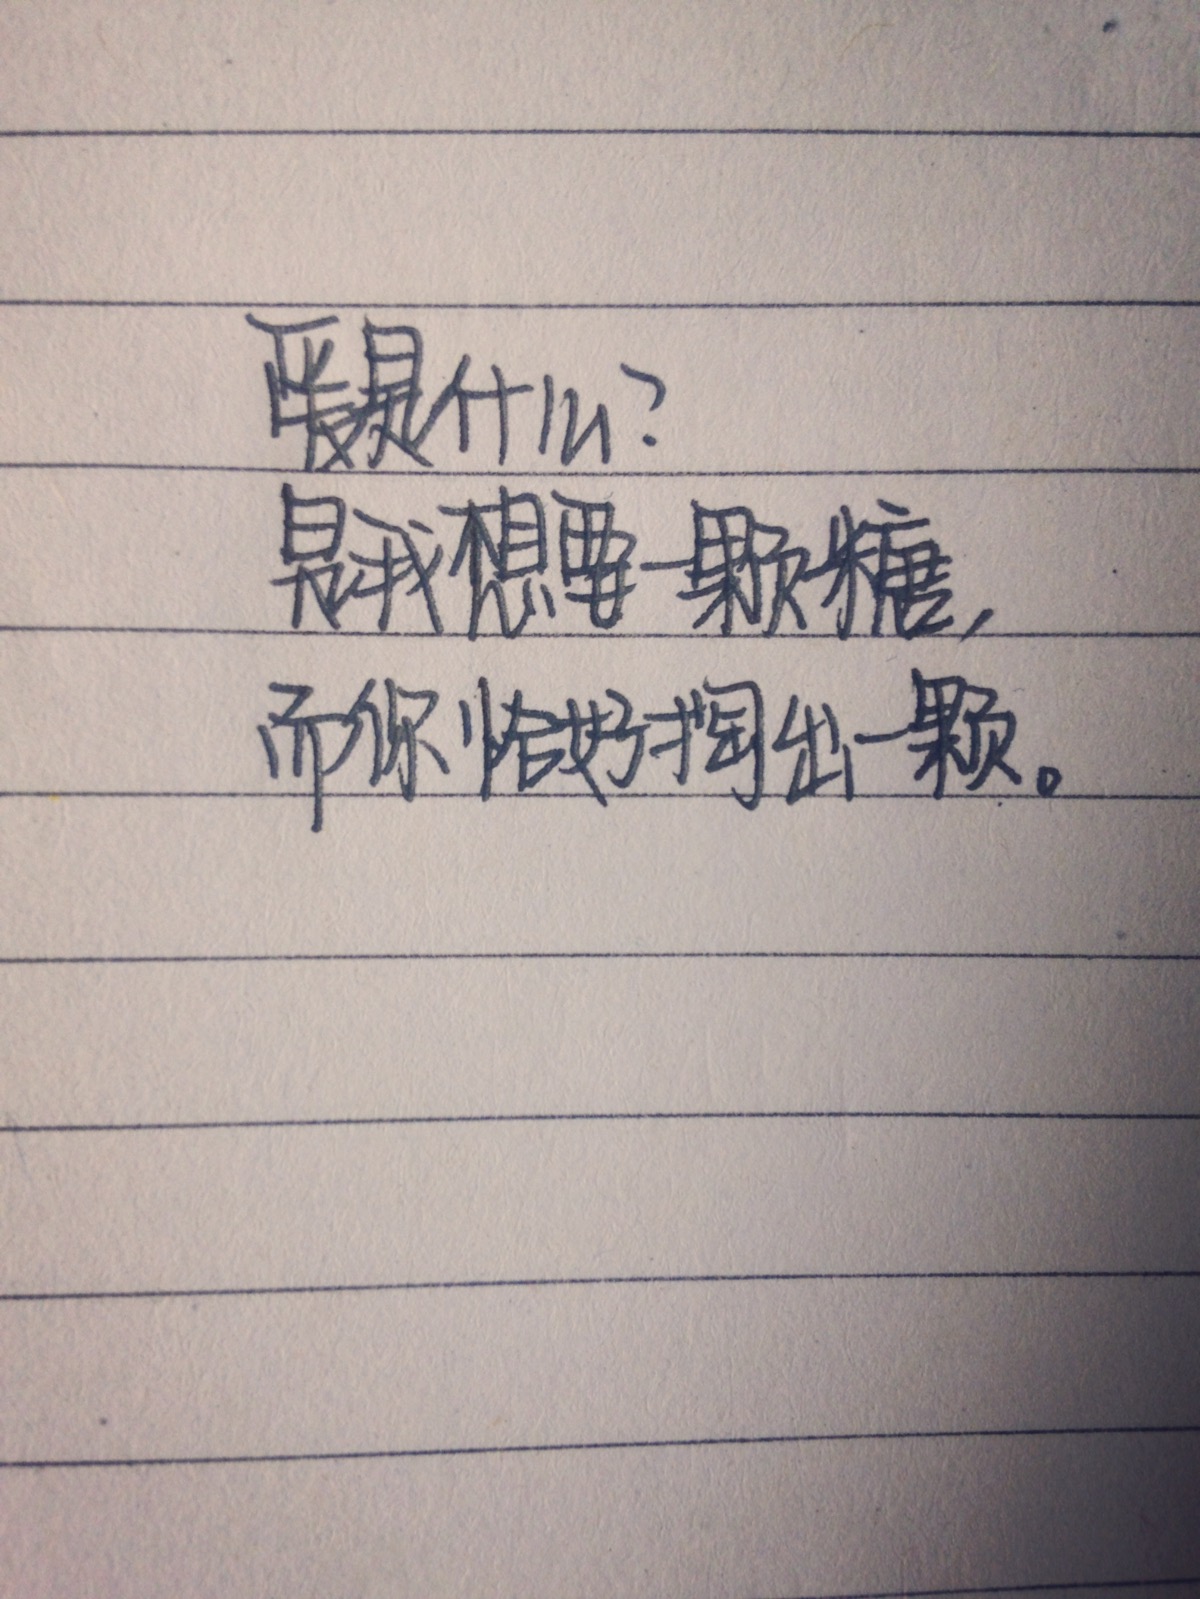 暖是什么?
是我想要一颗糖,
而你恰好掏出一颗。